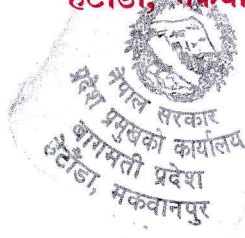 हेटौंडा,
नेपाल सरकार
प्रदेश प्रमुखको कार्यालय
बागमती प्रदेश
हेटौंडा, मकवानपुर